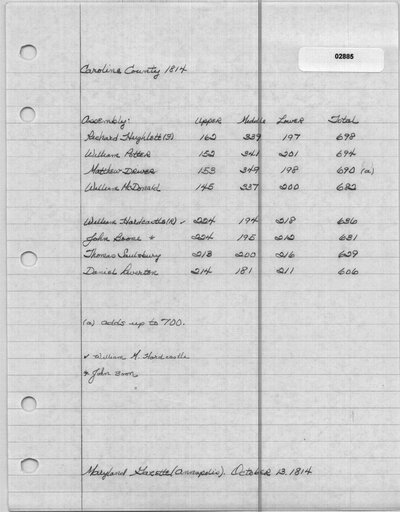 02885
Caroline County 1814
Assembly: Upper Middle Lower Total
Richard Hughlett (F) 162 339 197 698
William Potter 152 341 201 694
Matthew Driver 153 349 198 690 (a)
William McDonald 145 337 200 682
William Hardcastle (R) ✓ 224 194 218 636
John Boone * 224 195 212 631
Thomas Saulsbury 213 200 216 629
Daniel 214 181 211 606
(a) adds up to 700.
✓ William M. Hardcastle
* John Boon
Maryland Gazette (Annapolis). October 13, 1814